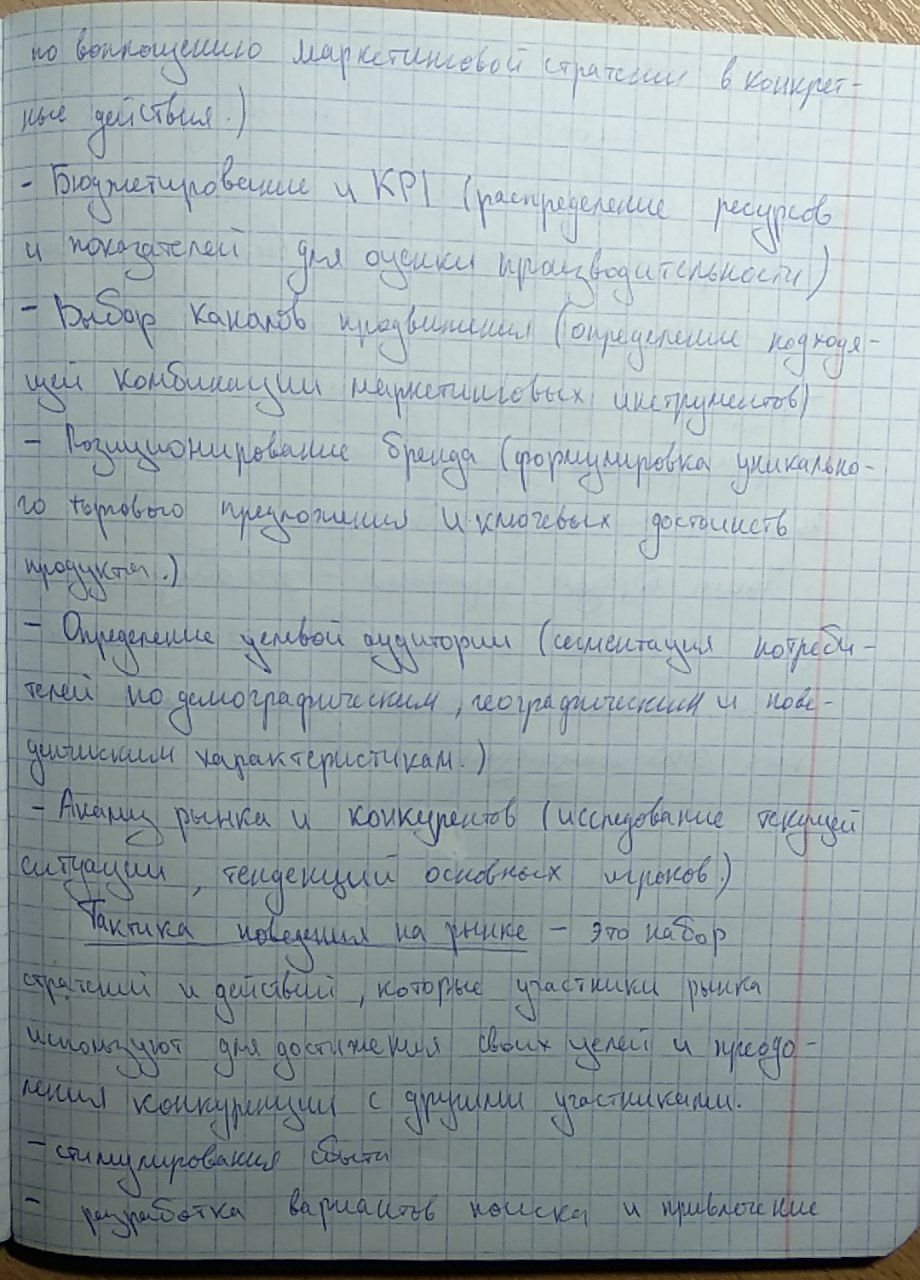 по воплощению маркетинговой стратегии в конкрет-
ные действия.)
- Бюджетирование и KPI (распределение ресурсов
и показателей для оценки производительности)
- Выбор каналов продвижения (определение подходя-
щей комбинации маркетинговых инструментов)
- Позиционирование бренда (формулировка уникально-
го торгового предложения и ключевых достоинств
продукта.)
- Определение целевой аудитории (сегментация потреби-
телей по демографическим, географическим и пове-
денческим характеристикам.)
- Анализ рынка и конкурентов (исследование текущей
ситуации, тенденций основных игроков.)
Тактика поведения на рынке - это набор
стратегий и действий, которые участники рынка
используют для достижения своих целей и преодо-
ления конкуренции с другими участниками.
- стимулирования сбыта
- разработка вариантов поиска и привлечение